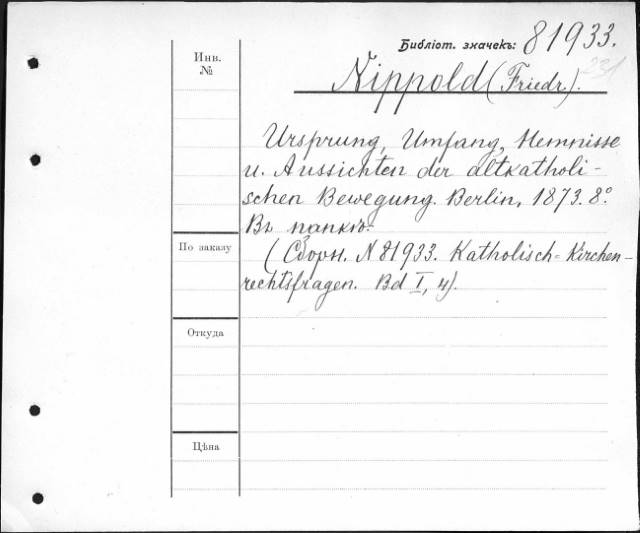 Библіот. значекъ: 81933.
Инв.
№
Nippold (Friedr.).
231
Ursprung, Umfang, Hemnisse
u. Aussichten der altkatholi-
schen Bewegung. Berlin, 1873. 8°.
Въ папкѣ.
По заказу
(Сборн. N 81933. Katholisch-Kirchen-
rechtsfragen. Bd I, 4).
Откуда
Цѣна